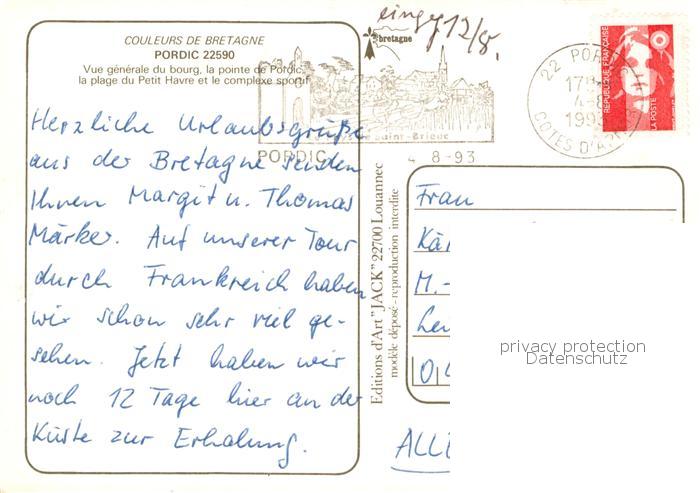 COULEURS DE BRETAGNE
PORDIC 22590
Vue générale du bourg, la pointe de Pordic,
la plage du Petit Havre et le complexe sportif
Herzliche Urlaubsgrüße
aus der Bretagne senden
Ihnen Margit u. Thomas
Märker. Auf unserer Tour
durch Frankreich haben
wir schon sehr viel ge-
sehen. Jetzt haben wir
noch 12 Tage hier an der
Küste zur Erholung.
eing. 12/8.
bretagne
Saint-Brieuc
PORDIC 4-8-93
Editions d'Art "JACK" 22700 Louannec
modèle déposé - reproduction interdite
22 PORDIC
17
4-8
1993
COTES D'AR
REPUBLIQUE FRANÇAISE
LA POSTE
Frau
Kär
M.-
Lei
0,4
ALLE
privacy protection
Datenschutz